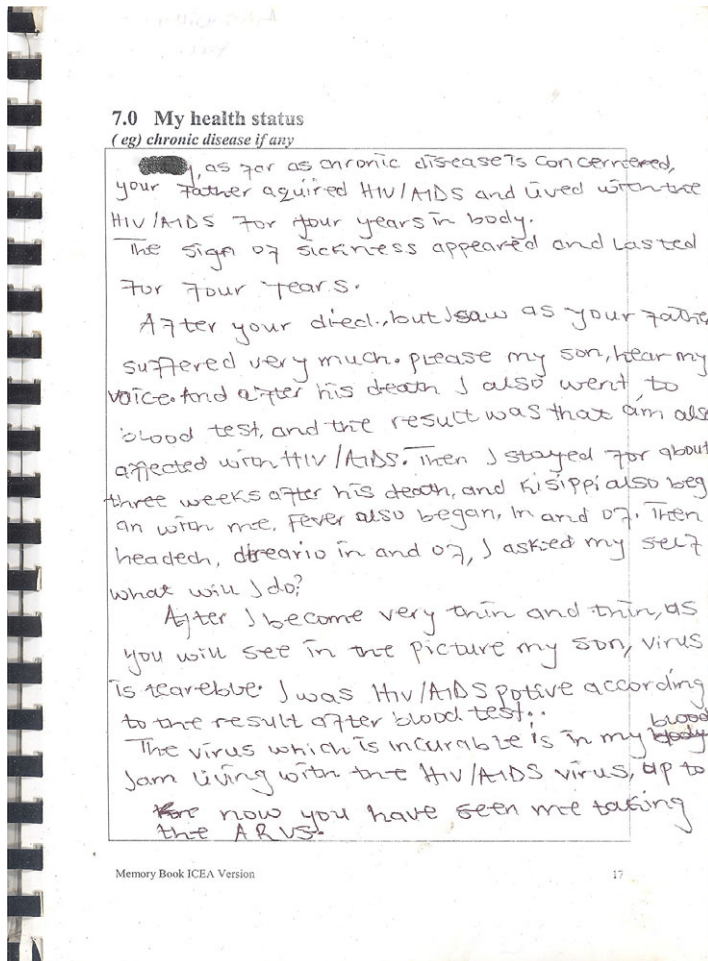 7.0 My health status
( eg) chronic disease if any
, as for as chronic disease is concerneed,
your Father aquired HIV/AIDS and lived with the
HIV/AIDS For four years in body.
The sign of sickness appeared and Lasted
For Four Years.
After your died., but I saw as your Father
suffered very much. please my son, hear my
voice. And after his death I also went to
blood test, and the result was that am also
affected with HIV/AIDS. Then I stayed for about
three weeks after his death, and Kisippi also beg
an with me, Fever also began, in and of. Then
headech, direario in and of, I asked my self
what will I do?
After I become very thin and thin, as
you will see in the picture my son, virus
is tearebbe. I was HIV/AIDS potive according
to the result after blood test..
blood
The virus which is incurable is in my body
I am living with the HIV/AIDS virus, up to
now you have seen me taking
the ARVS.
Memory Book ICEA Version
17